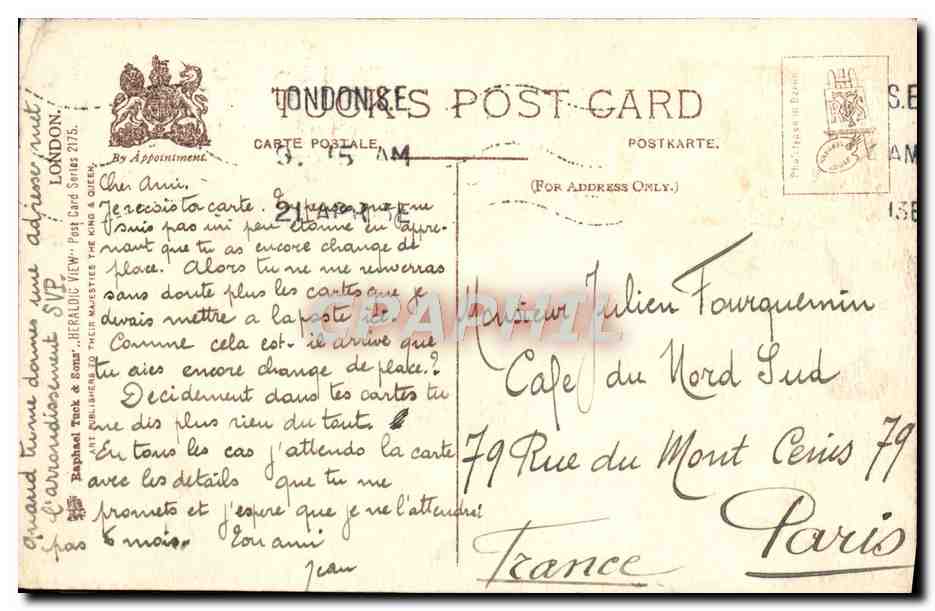 LONDON.S.E
TUCK'S POST CARD
CARTE POSTALE
POSTKARTE.
9.15 AM
(FOR ADDRESS ONLY.)
By Appointment.
21 AP
S.E
AM
Cher Ami.
Je reçois ta carte. Tu penses que je ne
suis pas un peu étonné en appre-
nant que tu as encore changé de
place. Alors tu ne me renverras
sans doute plus les cartes que je
devais mettre a la poste ici.
Comme cela est-il arrivé que
tu aies encore changé de place?
Decidement dans tes cartes tu
ne dis plus rien du tout.
En tous les cas j'attends la carte
avec les details que tu me
promets et j'espere que je ne l'attendrai
pas 6 mois. Ton ami
Jean
quand tu me donnes une adresse, met
l'arrondissement SVP.
Raphael Tuck & Sons' "HERALDIC VIEW" Post Card Series 2175.
LONDON.
ART PUBLISHERS TO THEIR MAJESTIES THE KING & QUEEN.
Monsieur Julien Fourquemin
Cafe du Nord Sud
79 Rue du Mont Cenis 79
Paris
France
CPAPHIL